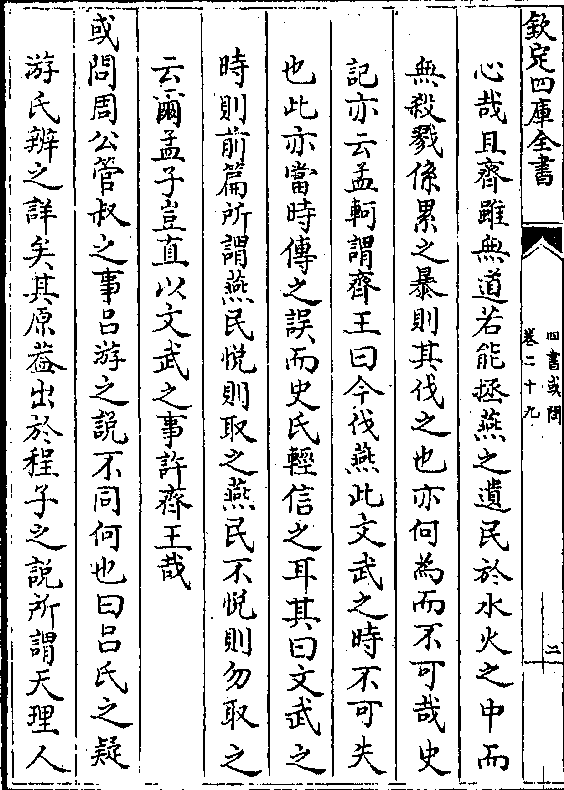 欽定四庫全書
四書或問
卷二十九
二
心哉且齊雖無道若能拯燕之遺民於水火之中而
無殺戮係累之暴則其伐之也亦何為而不可哉史
記亦云孟軻謂齊王曰今伐燕此文武之時不可失
也此亦當時傳之誤而史氏輕信之耳其曰文武之
時則前篇所謂燕民悦則取之燕民不悦則勿取之
云爾孟子豈直以文武之事許齊王哉
或問周公管叔之事吕游之説不同何也曰吕氏之疑
游氏辨之詳矣其原葢出於程子之説所謂天理人